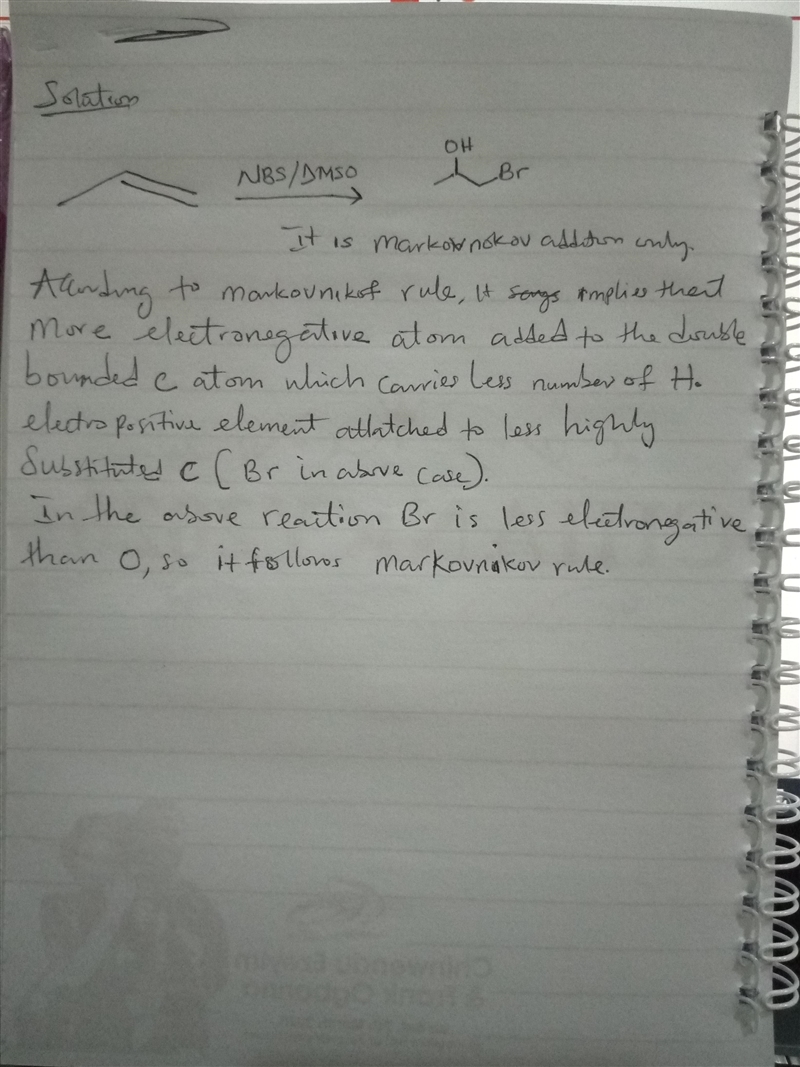 Solution
NBS/DMSO
OH
Br
It is markovnokov addition only.
According to markovnikof rule, It implies that
More electronegative atom added to the double
bounded C atom which carries less number of H.
electropositive element attatched to less highly
Substituted C (Br in above case).
In the above reaction Br is less electronegative
than O, so it follows markovnikov rule.